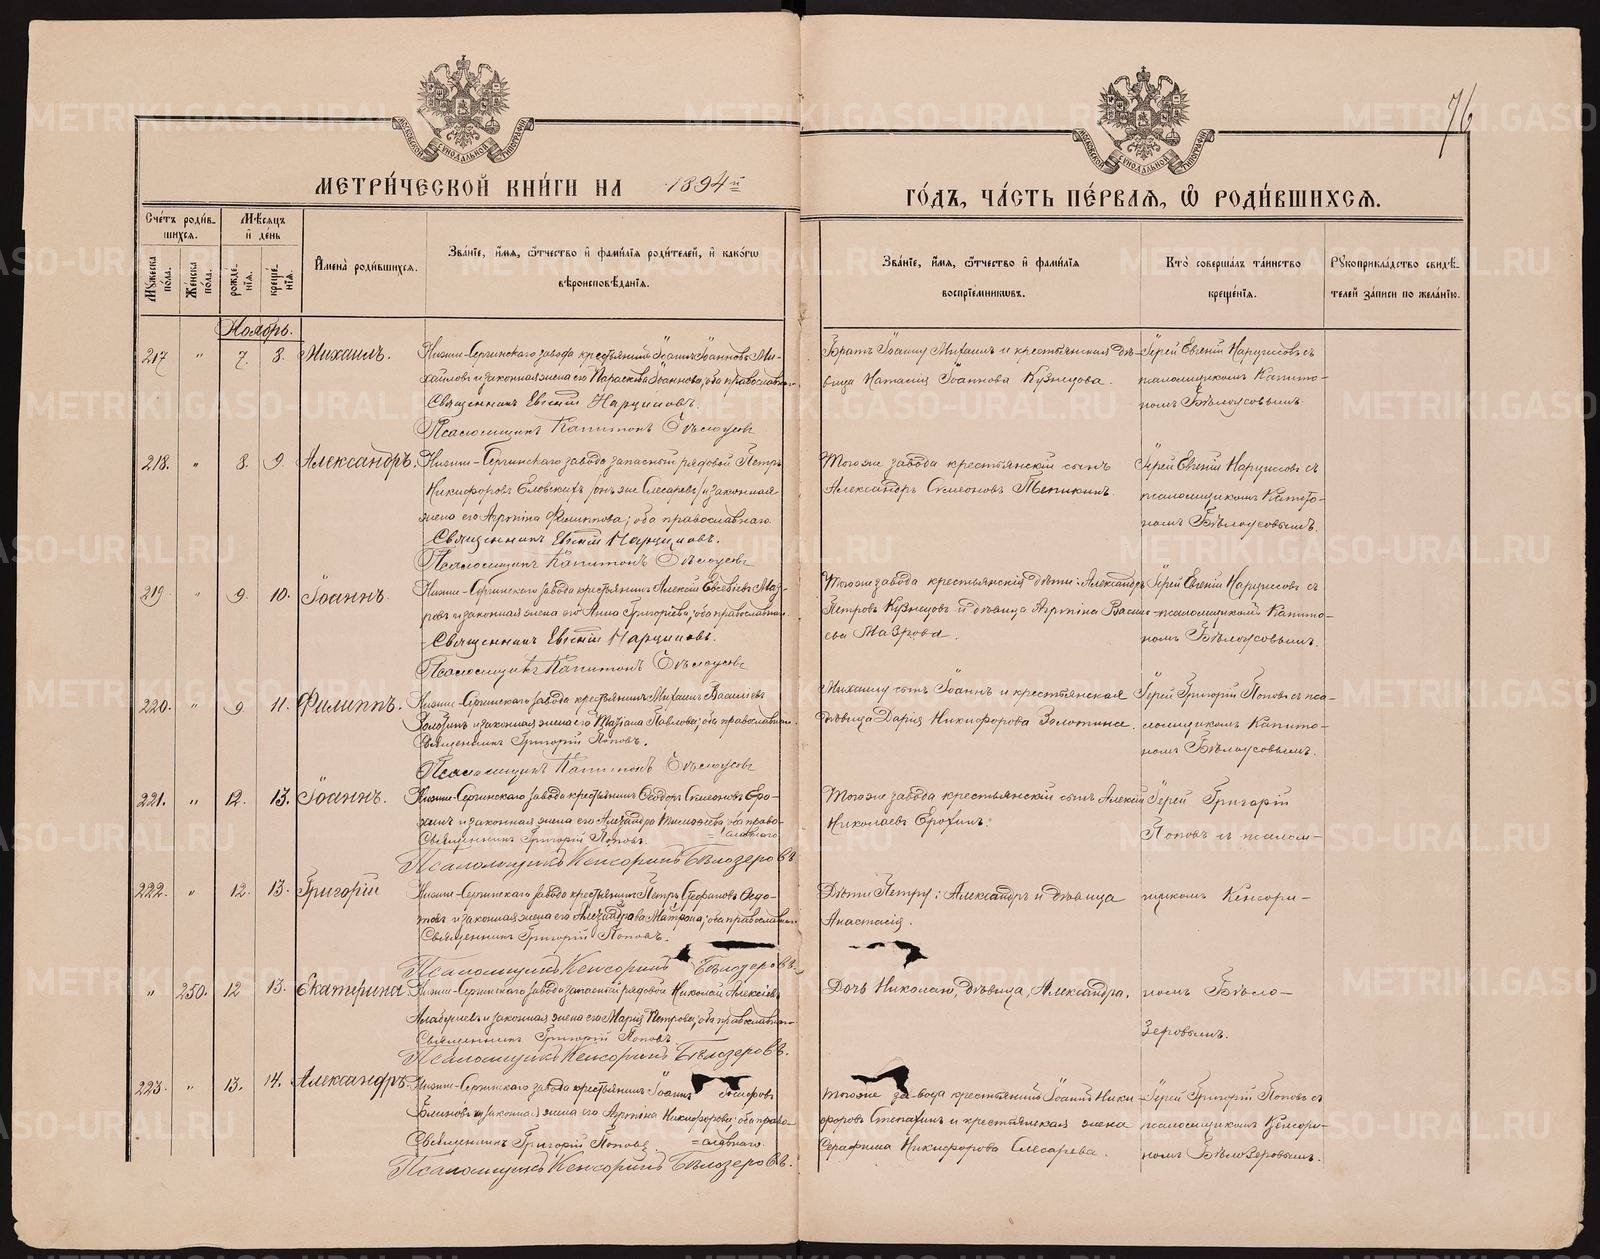 МЕТРИ́ЧЕСКОЙ КНИ́ГИ НА 1894й
ГО́ДЪ, ЧА́СТЬ ПЕ́РВАЯ, Ѿ РОДИ́ВШИХСЯ.
76
Сче́тъ роди́в-
шихся.
Мѣ́сяцъ
и де́нь
Мꙋ́жеска по́ла.
Же́нска по́ла.
рожде-
нія.
креще-
нія.
Имена̀ роди́вшихся.
Зва́ніе, и́мя, ѻ҆́тчество и фами́лія роди́телей, и како́гѡ
вѣроисповѣ́данія.
Зва́ніе, и́мя, ѻ҆́тчество и фами́лія
воспріе́мникѡвъ.
Кто̀ соверша́лъ та́инство
креще́нія.
Рꙋкоприкла́дство свидѣ́-
телей за́писи по жела́нію.
Ноябрь.
217 " 7. 8. Михаилъ.
Нижне-Сергинскаго завода крестьянинъ Іоаннъ Іоанновъ Ми-
хайловъ и законная жена его Параскева Іоаннова; оба православнаго.
Священникъ Евгеній Нарциссовъ.
Псаломщикъ Капитонъ Бѣлоусовъ
Братъ Іоанну Михаилъ и крестьянская дѣ-
вица Наталія Іоаннова Кузнецова.
Іерей Евгеній Нарциссовъ съ
псаломщикомъ Капито-
номъ Бѣлоусовымъ.
218. " 8. 9. Александръ.
Нижне-Сергинскаго завода запасный рядовой Петръ
Никифоровъ Еловскихъ /онъ же Слесаревъ/ и законная
жена его Агрипина Филиппова; оба православнаго.
Священникъ Евгеній Нарциссовъ.
Псаломщикъ Капитонъ Бѣлоусовъ
Тогоже завода крестьянскій сынъ
Александръ Симеоновъ Тыпикинъ
Іерей Евгеній Нарциссовъ съ
псаломщикомъ Капито-
номъ Бѣлоусовымъ.
219 " 9. 10. Іоаннъ.
Нижне-Сергинскаго завода крестьянинъ Алексій Евсевіевъ Маз-
ровъ и законная жена его Анна Григоріева; оба православнаго.
Священникъ Евгеній Нарциссовъ.
Псаломщикъ Капитонъ Бѣлоусовъ
Тогоже завода крестьянскія дѣти: Александръ
Петровъ Кузнецовъ и дѣвица Агрипина Васи-
сьева Мазрова.
Іерей Евгеній Нарциссовъ съ
псаломщикомъ Капито-
номъ Бѣлоусовымъ.
220. " 9 11. Филиппъ.
Нижне-Сергинскаго завода крестьянинъ Михаилъ Василіевъ
Золотинъ и законная жена его Татіана Павлова; оба православнаго.
Священникъ Григорій Поповъ.
Псаломщикъ Капитонъ Бѣлоусовъ
Михаилу сынъ Іоаннъ и крестьянская
дѣвица Дарія Никифорова Золотина.
Іерей Григорій Поповъ съ пса-
ломщикомъ Капито-
номъ Бѣлоусовымъ.
221. " 12. 13. Іоаннъ.
Нижне-Сергинскаго завода крестьянинъ Ѳеодоръ Симеоновъ Еро-
хинъ и законная жена его Александра Тимоѳеева; оба право-
славнаго.
Священникъ Григорій Поповъ.
Псаломщикъ Кенсоринъ Бѣлозеровъ.
Тогоже завода крестьянскій сынъ Алексій
Николаевъ Ерохинъ.
Іерей Григорій
Поповъ съ псалом-
222. " 12. 13. Григорій
Нижне-Сергинскаго завода крестьянинъ Петръ Стефановъ Ѳедо-
товъ и законная жена его Александрова Матрона; оба православнаго
Священникъ Григорій Поповъ.
Псаломщикъ Кенсоринъ Бѣлозеровъ.
Дѣти Петру: Александръ и дѣвица
Анастасія.
щикомъ Кенсори-
" 250. 12 13. Екатерина
Нижне-Сергинскаго завода запасный рядовой Николай Алексіевъ
и законная жена его Марія Петрова; оба православнаго
Священникъ Григорій Поповъ
Псаломщикъ Кенсоринъ Бѣлозеровъ.
Дочь Николаю, дѣвица, Александра.
номъ Бѣло-
зеровымъ.
223. " 13. 14. Александръ.
Нижне-Сергинскаго завода крестьянинъ Іоаннъ
Блиновъ и законная жена его Агрипина Никифорова; оба право-
славнаго.
Священникъ Григорій Поповъ.
Псаломщикъ Кенсоринъ Бѣлозеровъ.
Тогоже завода крестьянинъ Іоаннъ Ники-
форовъ Стекатинъ и крестьянская жена
Серафима Никифорова Слесарева.
Іерей Григорій Поповъ съ
псаломщикомъ Кенсори-
номъ Бѣлозеровымъ.
METRIKI.GASO-URAL.RU